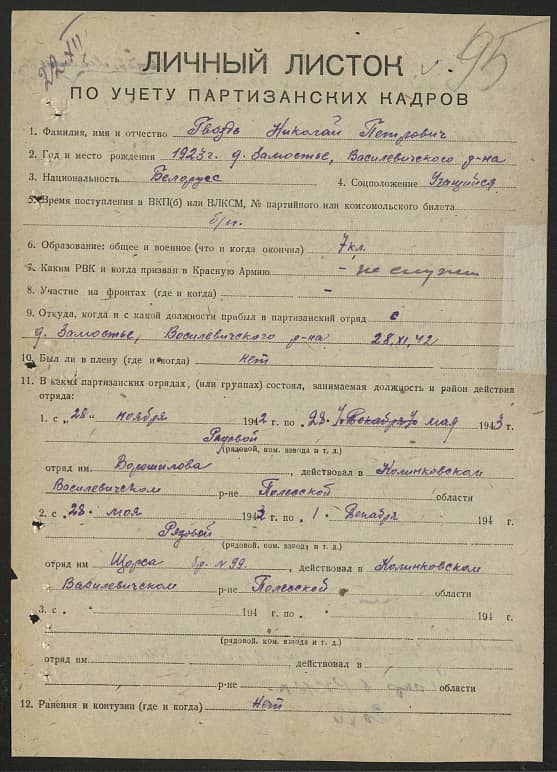 22/XII
95
ЛИЧНЫЙ ЛИСТОК
ПО УЧЕТУ ПАРТИЗАНСКИХ КАДРОВ
1. Фамилия, имя и отчество Гвоздь Николай Петрович
2. Год и место рождения 1923 г. д. Замостье, Василевичского р-на
3. Национальность Белорусс 4. Соцположение Учащийся
5. Время поступления в ВКП(б) или ВЛКСМ, № партийного или комсомольского билета
б/п.
6. Образование: общее и военное (что и когда окончил) 7 кл.
7. Каким РВК и когда призван в Красную Армию - не служил
8. Участие на фронтах (где и когда) -
9. Откуда, когда и с какой должности прибыл в партизанский отряд с
д. Замостье, Василевичского р-на 28.XI.42
10. Был ли в плену (где и когда) нет
11. В каких партизанских отрядах, (или группах) состоял, занимаемая должность и район действия
отряда:
1. с „28" ноября 1942 г. по 28. Декабря мая 1943 г.
Рядовой
(рядовой, ком. взвода и т. д.)
отряд им. Ворошилова, действовал в Калинковском
Василевичском р-не Полесской области
2. с „28. мая 1943 г. по „1. Декабря 194 г.
Рядовой
(рядовой, ком. взвода и т. д.)
отряд им Щорса бр. №99., действовал в Калинковском
Василевичском р-не Полесской области
3. с „ 194 г. по „ 194 г.
(рядовой, ком. взвода и т. д.)
отряд им. действовал в
р-не области
12. Ранения и контузии (где и когда) Нет